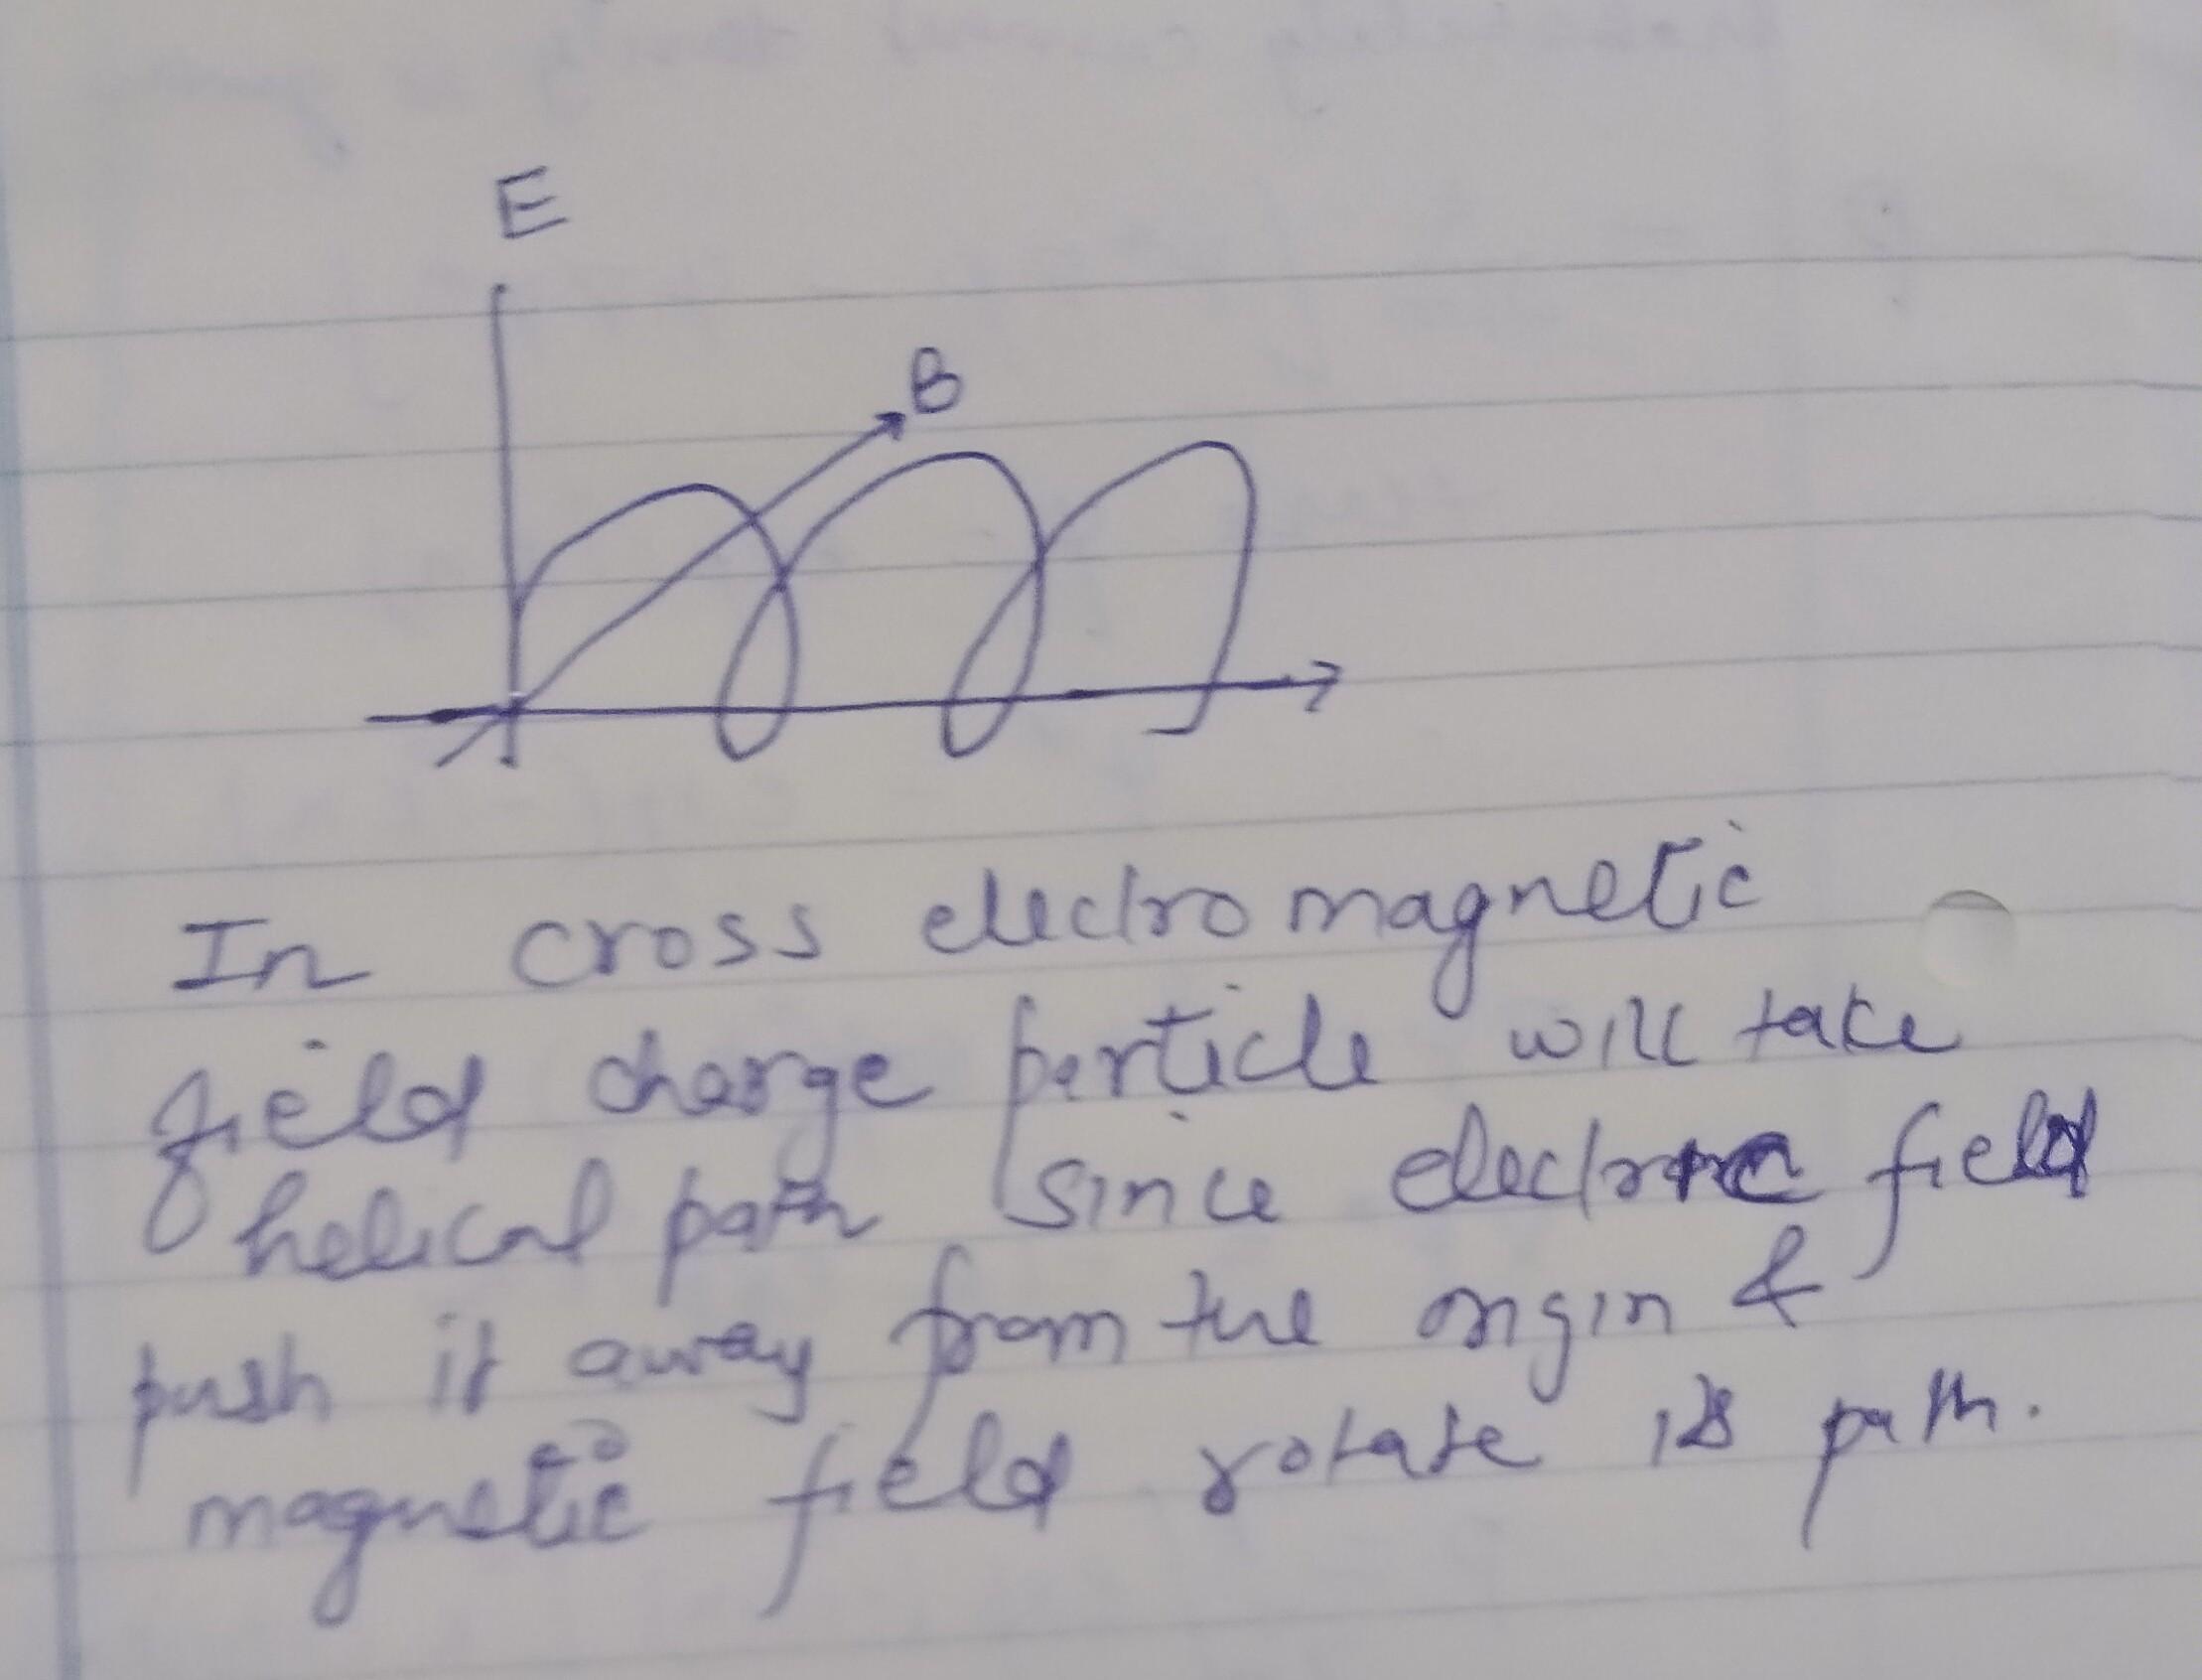 E
B
In cross electromagnetic
field charge particle will take
helical path since electric field
push it away from the origin &
magnetic field rotate is path.